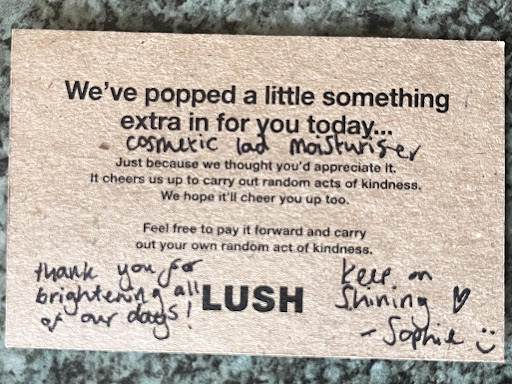 We've popped a little something
extra in for you today...
cosmetic lad moisturiser
Just because we thought you'd appreciate it.
It cheers us up to carry out random acts of kindness.
We hope it'll cheer you up too.
Feel free to pay it forward and carry
out your own random act of kindness.
thank you for
brightening all
of our days!
LUSH
keep on
Shining ♡
- Sophie :)